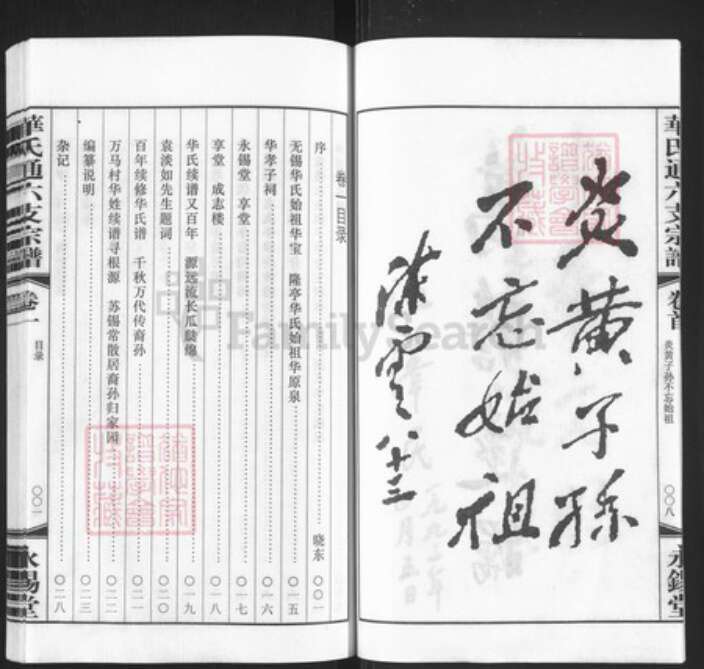 炎黄子孙
不忘始祖
陈云 八十三
華氏通六支宗譜
卷首
炎黄子孙不忘始祖
〇〇八
永錫堂
卷一目录
序 晓东 〇〇一
无锡华氏始祖华宝 隆亭华氏始祖华原泉 〇一五
华孝子祠 〇一六
永锡堂 享堂 〇一七
享堂 成志楼 〇一八
华氏续谱又百年 源远流长瓜瓞绵 〇一九
袁淡如先生题词 〇二〇
百年续修华氏谱 千秋万代传裔孙 〇二一
万马村华姓续谱寻根源 苏锡常散居裔孙归家园 〇二二
编纂说明 〇二三
杂记 〇二八
華氏通六支宗譜
卷一
目录
〇〇一
永錫堂
FamilySearch